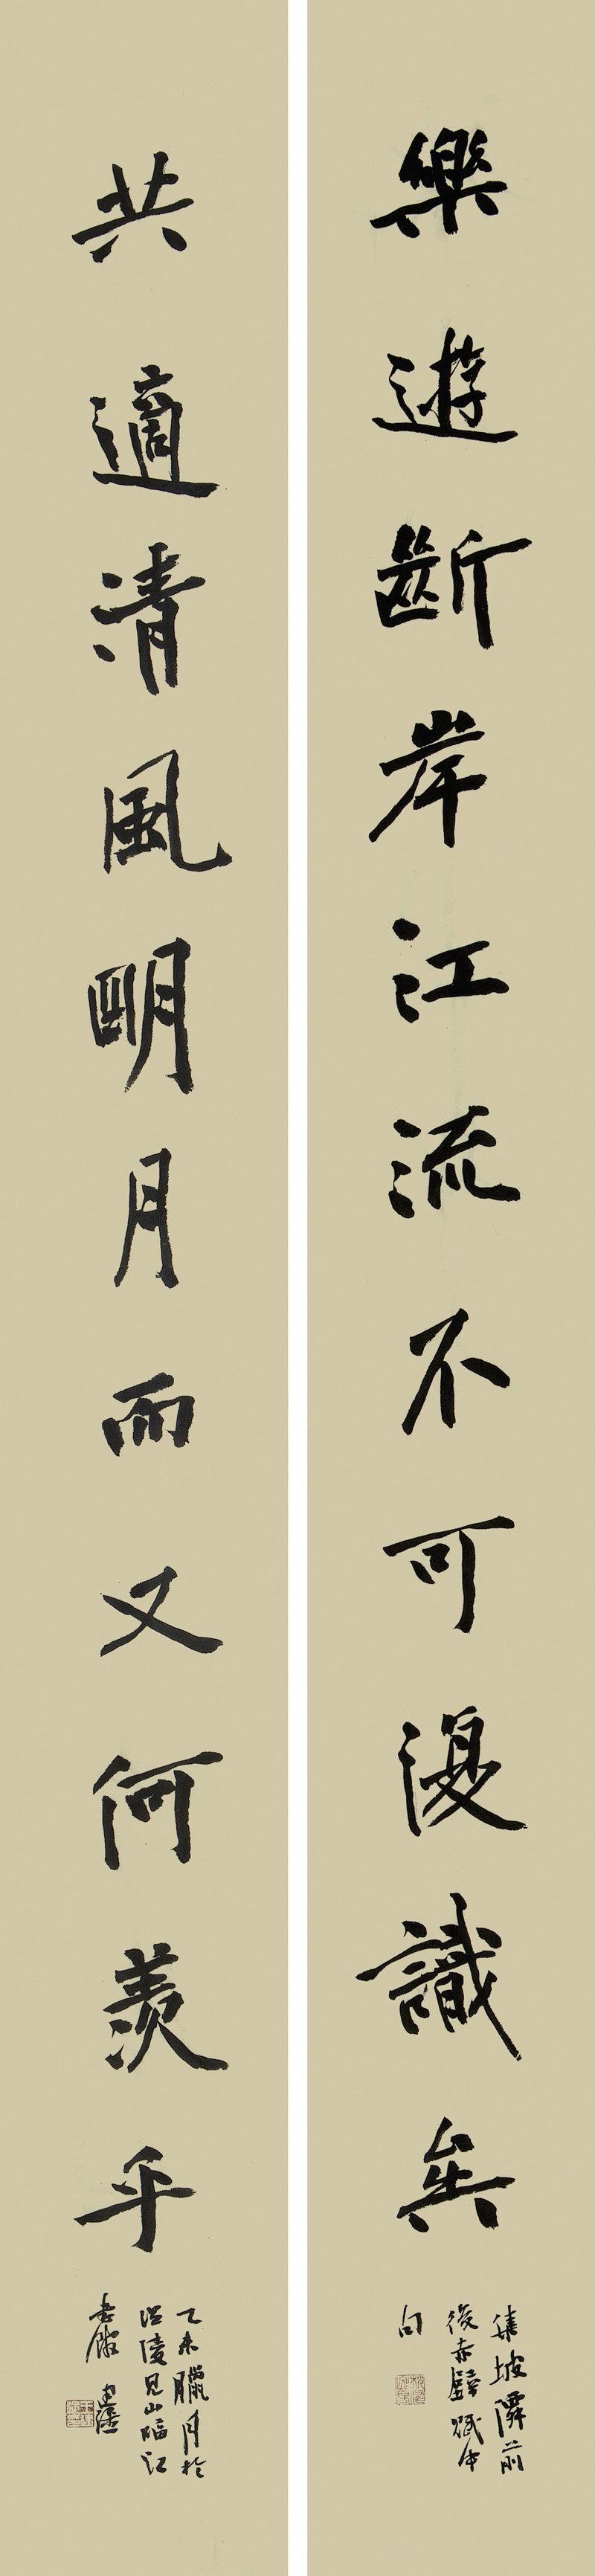 樂遊斷岸江流不可復識矣
集坡僊前
後赤壁賦中
句
共適清風明月而又何羨乎
乙未臘月於
涪陵見山臨江